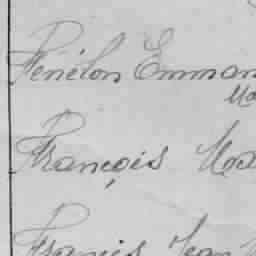 Fénélon Emman
Ma
François Mod
Francis Jean